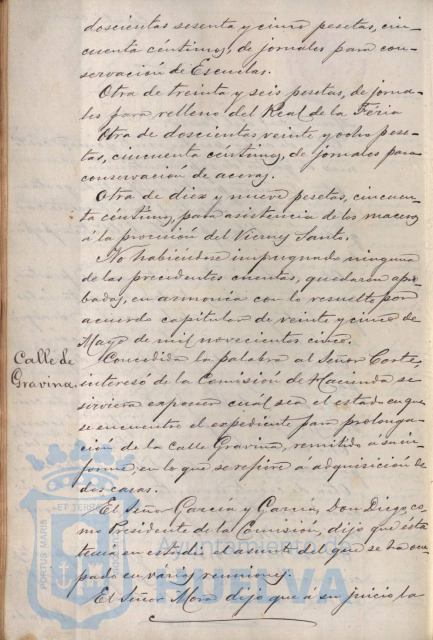 doscientas sesenta y cinco pesetas, cin-
cuenta céntimos, de jornales para con-
servación de Escuelas.
Otra de treinta y seis pesetas, de jorna-
les para relleno del Real de la Feria
Otra de doscientas veinte y ocho pese-
tas, cincuenta céntimos, de jornales para
conservación de aceras.
Otra de diez y nueve pesetas, cincuen-
ta céntimos, para asistencia de los maceros
á la procesión del Viernes Santo.
No habiéndose impugnado ninguna
de las precedentes cuentas, quedaron apro-
badas, en armonía con lo resuelto por
acuerdo capitular de veinte y cinco de
Mayo de mil novecientos cinco.
Calle de
Gravina.
Concedida la palabra al Señor Corte,
interesó de la Comisión de Hacienda se
sirviera exponer cuál sea el estado en que
se encuentra el expediente para prolonga-
ción de la Calle Gravina, remitido a su in-
forme, en lo que se refiere á adquisición de
dos casas.
El Señor García y García, Don Diego, co-
mo Presidente de la Comisión, dijo que ésta
tenía en estudio el asunto del que se ha ocu-
pado en varias reuniones.
El Señor Mora dijo que á su juicio la
PORTUS MARIS
ET TERRAE
Ayuntamiento de
HUELVA